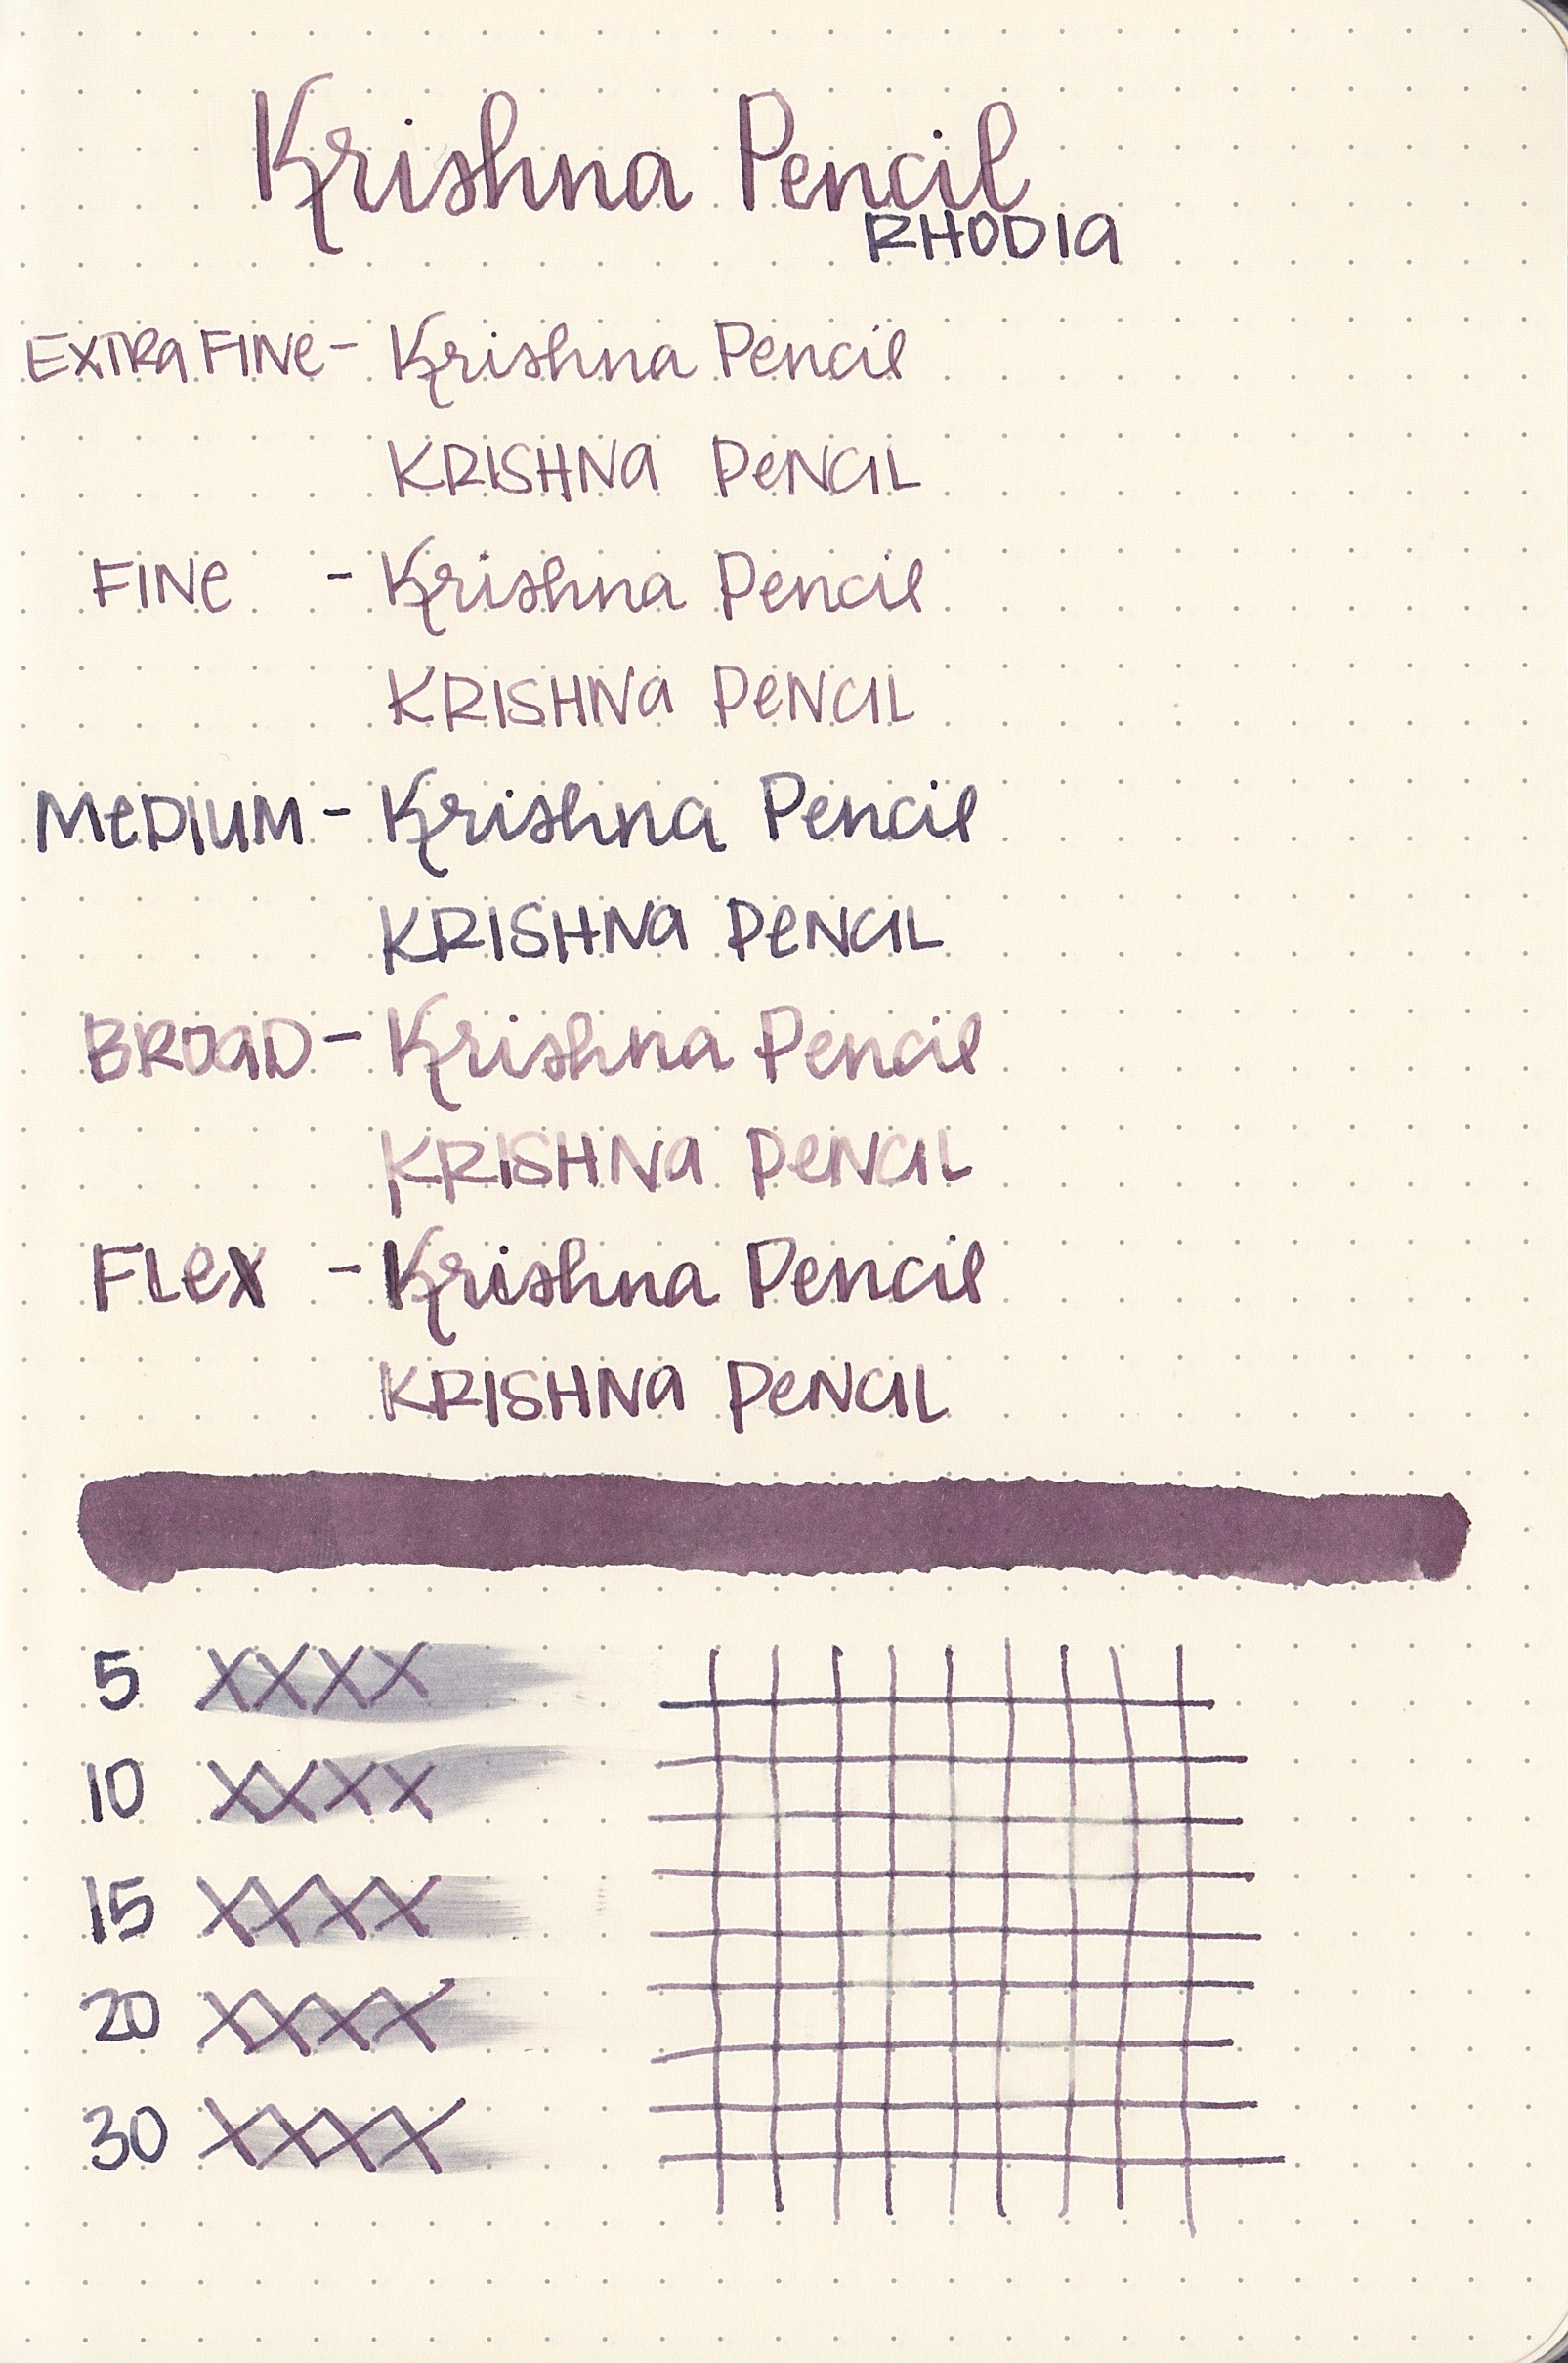 Krishna Pencil
RHODIA
EXTRA FINE - Krishna Pencil
KRISHNA PENCIL
FINE - Krishna Pencil
KRISHNA PENCIL
MEDIUM - Krishna Pencil
KRISHNA PENCIL
BROAD - Krishna Pencil
KRISHNA PENCIL
FLEX - Krishna Pencil
KRISHNA PENCIL
5 XXXX
10 XXXX
15 XXXX
20 XXXX
30 XXXX